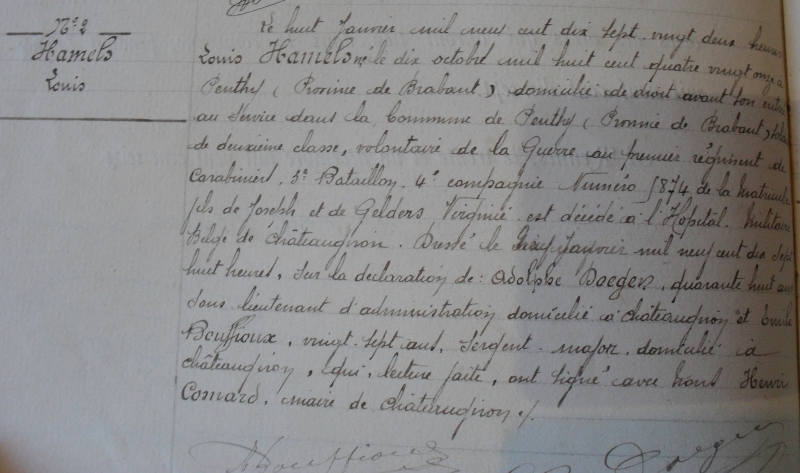 N° 2
Hamels
Louis
Le huit Janvier mil neuf cent dix sept vingt deux heures
Louis Hamels né le dix octobre mil huit cent quatre vingt onze à
Penthy (Province de Brabant) domicilié de droit avant son entrée
au Service dans la Commune de Penthy (Province de Brabant), soldat
de deuxième classe, volontaire de la Guerre au premier régiment de
Carabiniers, 3e Bataillon, 4e compagnie Numéro 5874 de la matricule
fils de Joseph et de Gelders Virginie est décédé à l'Hôpital Militaire
Belge de Châteaugiron. Dressé le neuf Janvier mil neuf cent dix sept
huit heures, sur la déclaration de: Adolphe Daeger, quarante huit ans
sous lieutenant d'administration domicilié à Châteaugiron et Emile
Bouffioux, vingt-sept ans, Sergent-major, domicilié à
Châteaugiron, qui, lecture faite, ont signé avec Nous Henri
Comard, maire de Châteaugiron ./.
Bouffioux